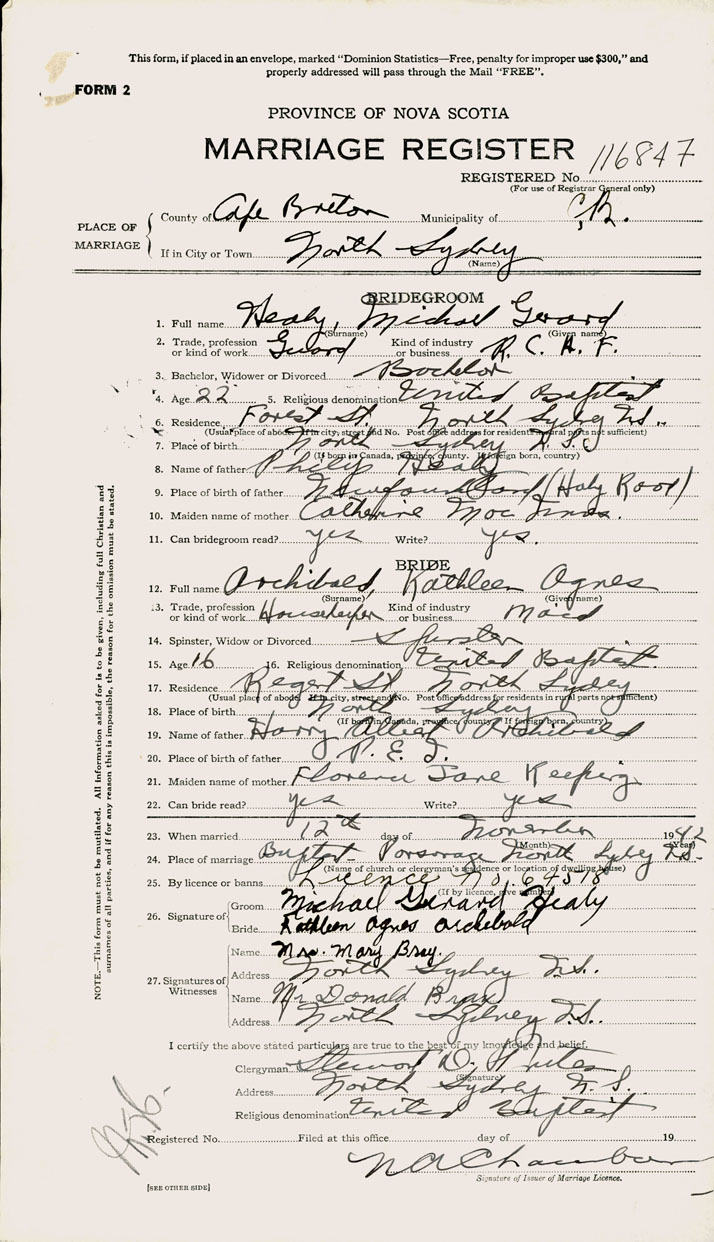 This form, if placed in an envelope, marked "Dominion Statistics—Free, penalty for improper use $300," and
properly addressed will pass through the Mail "FREE".
FORM 2
PROVINCE OF NOVA SCOTIA
MARRIAGE REGISTER
116847
REGISTERED No.
(For use of Registrar General only)
PLACE OF MARRIAGE
County of Cape Breton Municipality of C.B.
If in City or Town North Sydney
(Name)
BRIDEGROOM
1. Full name Healy, Michael Gerard
(Surname) (Given name)
2. Trade, profession or kind of work Guard Kind of industry or business R. C. A. F.
3. Bachelor, Widower or Divorced Bachelor
4. Age 22 5. Religious denomination United Baptist
6. Residence Forest St. North Sydney N.S.
(Usual place of abode. If in city, street and No. Post office address for residents in rural parts not sufficient)
7. Place of birth North Sydney N.S.
(If born in Canada, province, county. If foreign born, country)
8. Name of father Philip Healy
9. Place of birth of father Newfoundland (Holy Rood)
10. Maiden name of mother Catherine Mac Innis.
11. Can bridegroom read? yes Write? yes.
BRIDE
12. Full name Archibald, Kathleen Agnes
(Surname) (Given name)
13. Trade, profession or kind of work Housekeeper Kind of industry or business Maid
14. Spinster, Widow or Divorced Spinster
15. Age 16 16. Religious denomination United Baptist.
17. Residence Regent St. North Sydney
(Usual place of abode. If in city, street and No. Post office address for residents in rural parts not sufficient)
18. Place of birth North Sydney
(If born in Canada, province, county. If foreign born, country)
19. Name of father Harry Archibald
20. Place of birth of father P. E. I.
21. Maiden name of mother Florence Jane Keeping
22. Can bride read? yes Write? yes
23. When married 12th day of November 1942
(Month) (Year)
24. Place of marriage Baptist Parsonage North Sydney N.S.
(Name of church or clergyman's residence or location of dwelling house)
25. By licence or banns Licence No. 64578
(If by licence, give number)
26. Signature of
Groom Michael Gerard Healy
Bride Kathleen Agnes Archibald
27. Signatures of Witnesses
Name Mrs. Mary Bray.
Address North Sydney N.S.
Name Mr Donald Bray
Address North Sydney N.S.
I certify the above stated particulars are true to the best of my knowledge and belief.
Clergyman D.
(Signature)
Address North Sydney N. S.
Religious denomination United Baptist
Registered No. Filed at this office day of 19
Signature of Issuer of Marriage Licence.
[SEE OTHER SIDE]
NOTE.—This form must not be mutilated. All information asked for is to be given, including full Christian and
surnames of all parties, and if for any reason this is impossible, the reason for the omission must be stated.